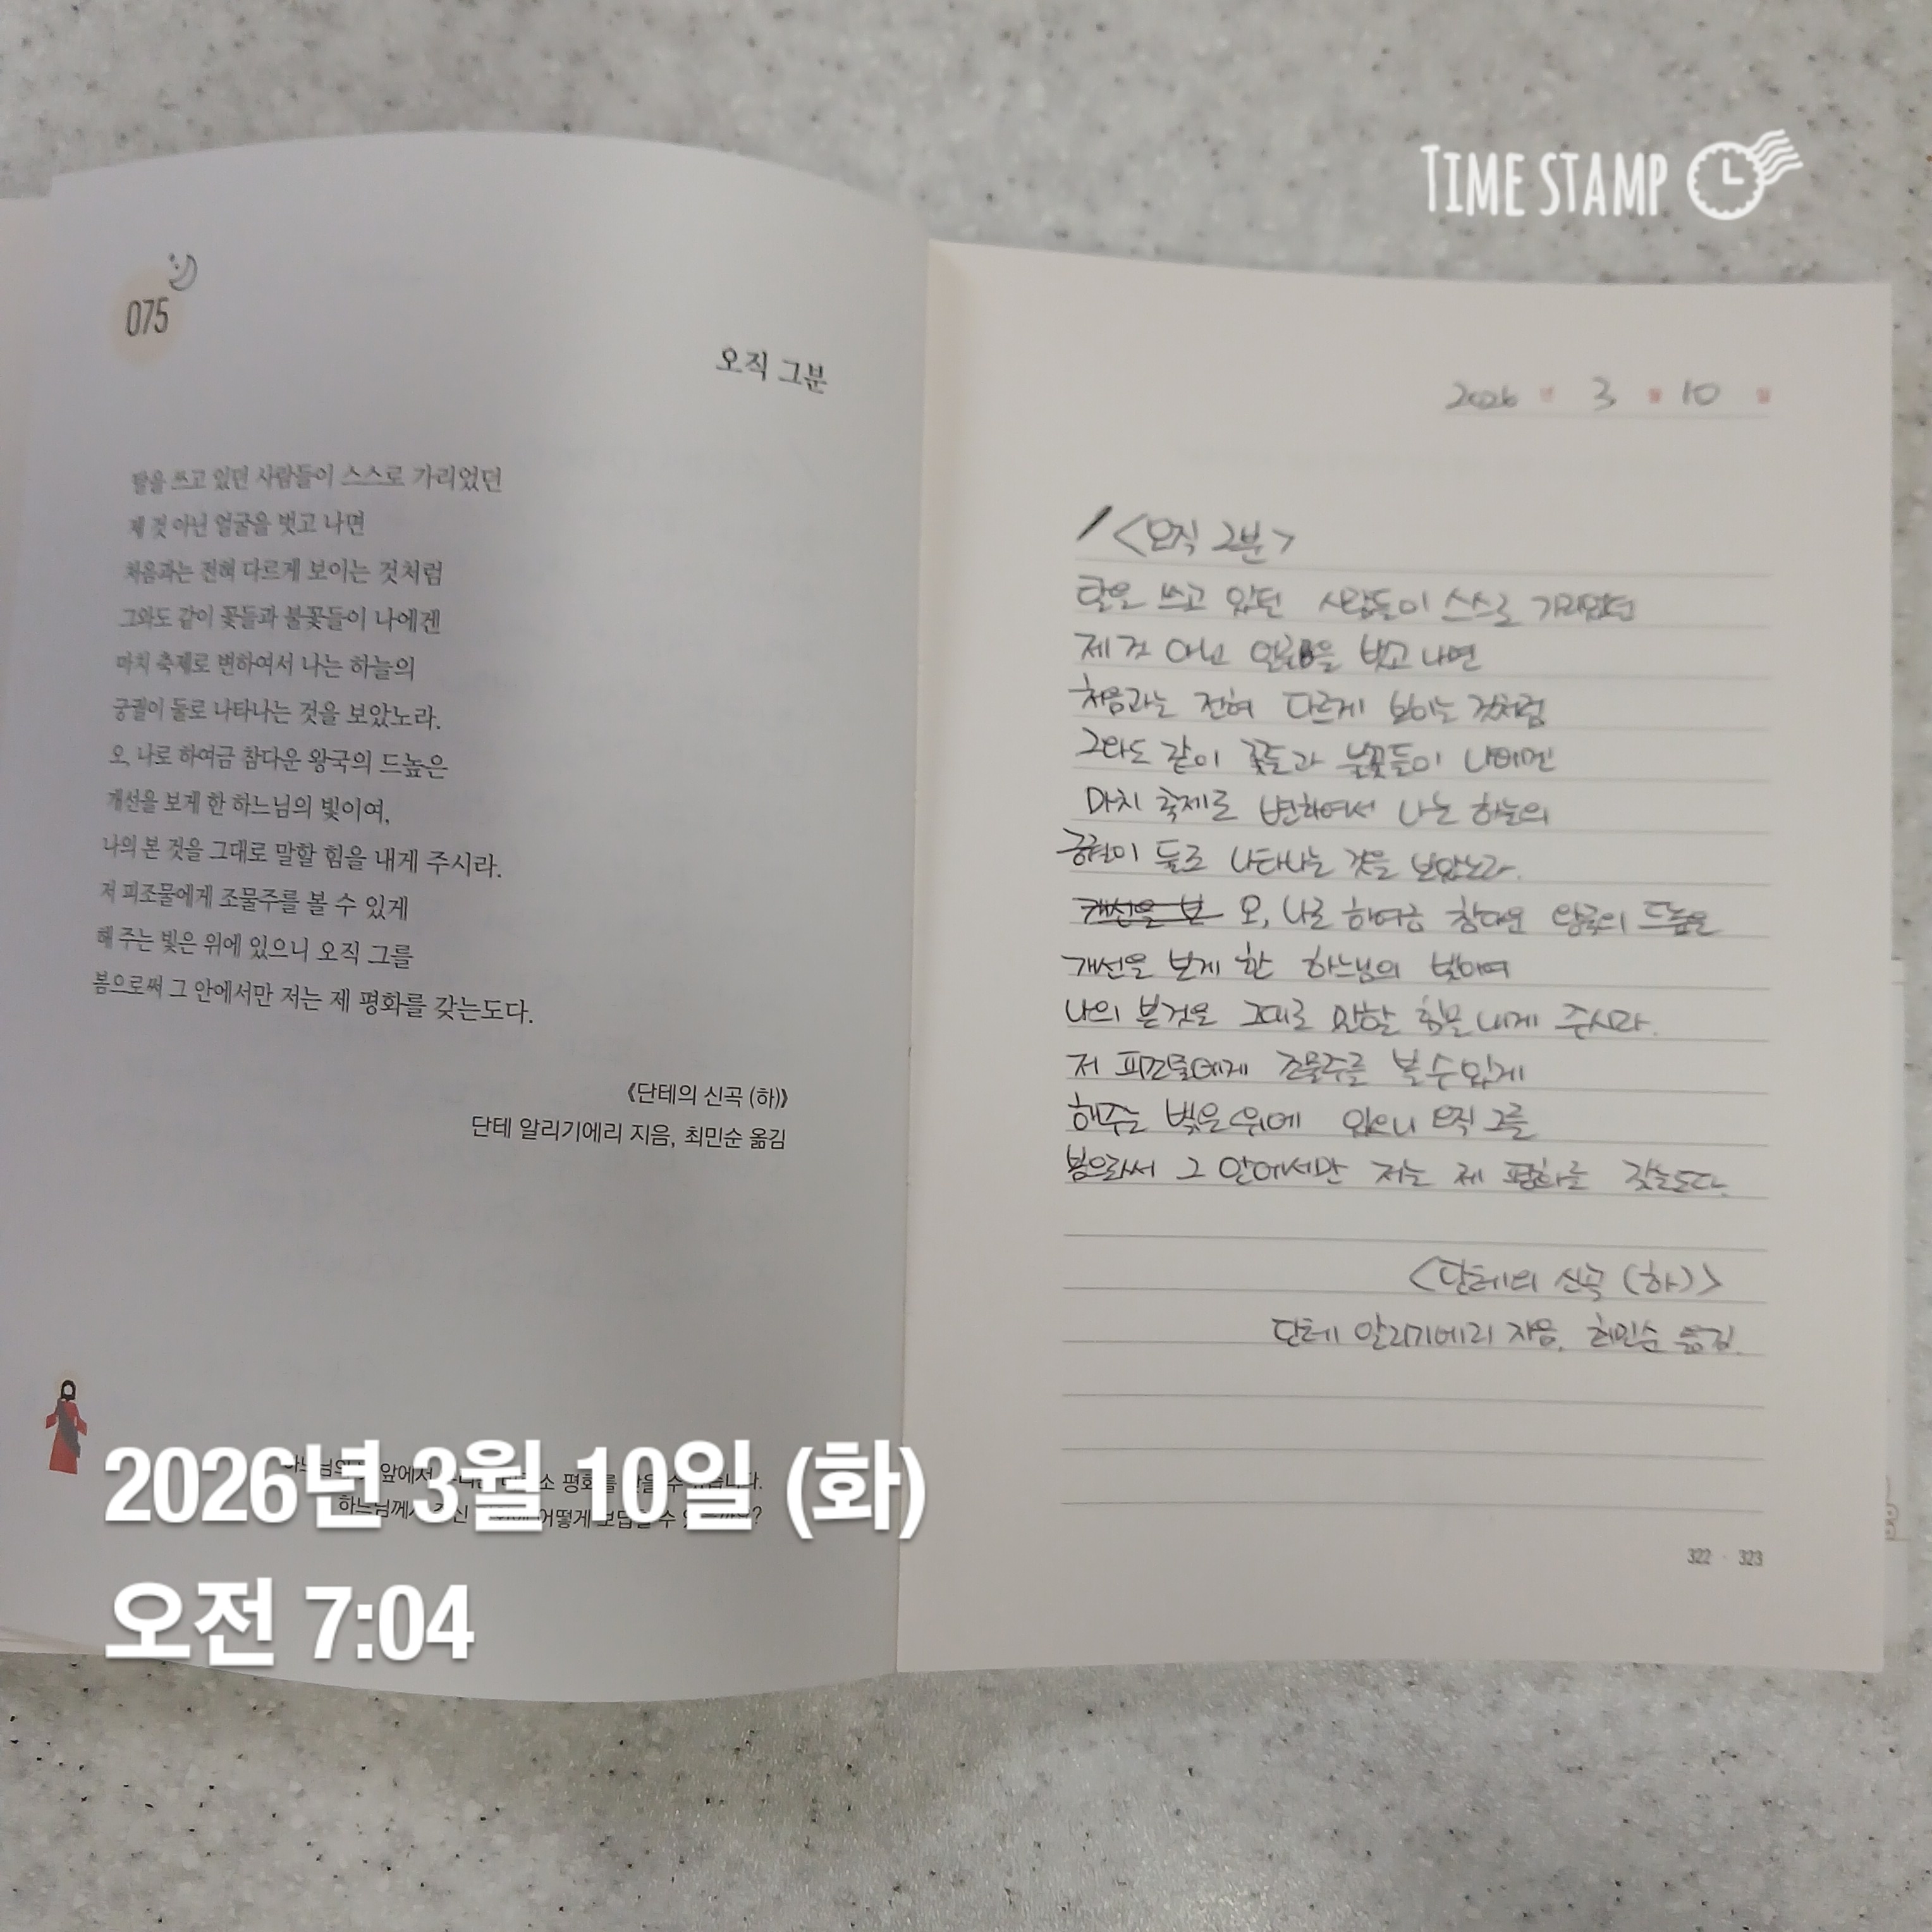 TIME STAMP
075
오직 그분
탈을 쓰고 있던 사람들이 스스로 가리었던
제 것 아닌 얼굴을 벗고 나면
처음과는 전혀 다르게 보이는 것처럼
그와도 같이 꽃들과 불꽃들이 나에겐
마치 축제로 변하여서 나는 하늘의
궁궐이 둘로 나타나는 것을 보았노라.
오, 나로 하여금 참다운 왕국의 드높은
개선을 보게 한 하느님의 빛이여,
나의 본 것을 그대로 말할 힘을 내게 주시라.
저 피조물에게 조물주를 볼 수 있게
해 주는 빛은 위에 있으니 오직 그를
봄으로써 그 안에서만 저는 제 평화를 갖는도다.
《단테의 신곡 (하)》
단테 알리기에리 지음, 최민순 옮김
앞에서 평화를 수
하느님께서 어떻게 보답할 수
2026년 3월 10일 (화)
오전 7:04
2026 년 3 월 10 일
<오직 그분>
탈을 쓰고 있던 사람들이 스스로 가리었던
제 것 아닌 얼굴을 벗고 나면
처음과는 전혀 다르게 보이는 것처럼
그와도 같이 꽃들과 불꽃들이 나에겐
마치 축제로 변하여서 나는 하늘의
궁궐이 둘로 나타나는 것을 보았노라.
개선을 본 오, 나로 하여금 참다운 왕국의 드높은
개선을 보게 한 하느님의 빛이여
나의 본것을 그대로 말할 힘을 내게 주시라.
저 피조물에게 조물주를 볼 수 있게
해주는 빛은 위에 있으니 오직 그를
봄으로써 그 안에서만 저는 제 평화를 갖는도다.
<단테의 신곡 (하)>
단테 알리기에리 지음, 최민순 옮김.
322 · 323